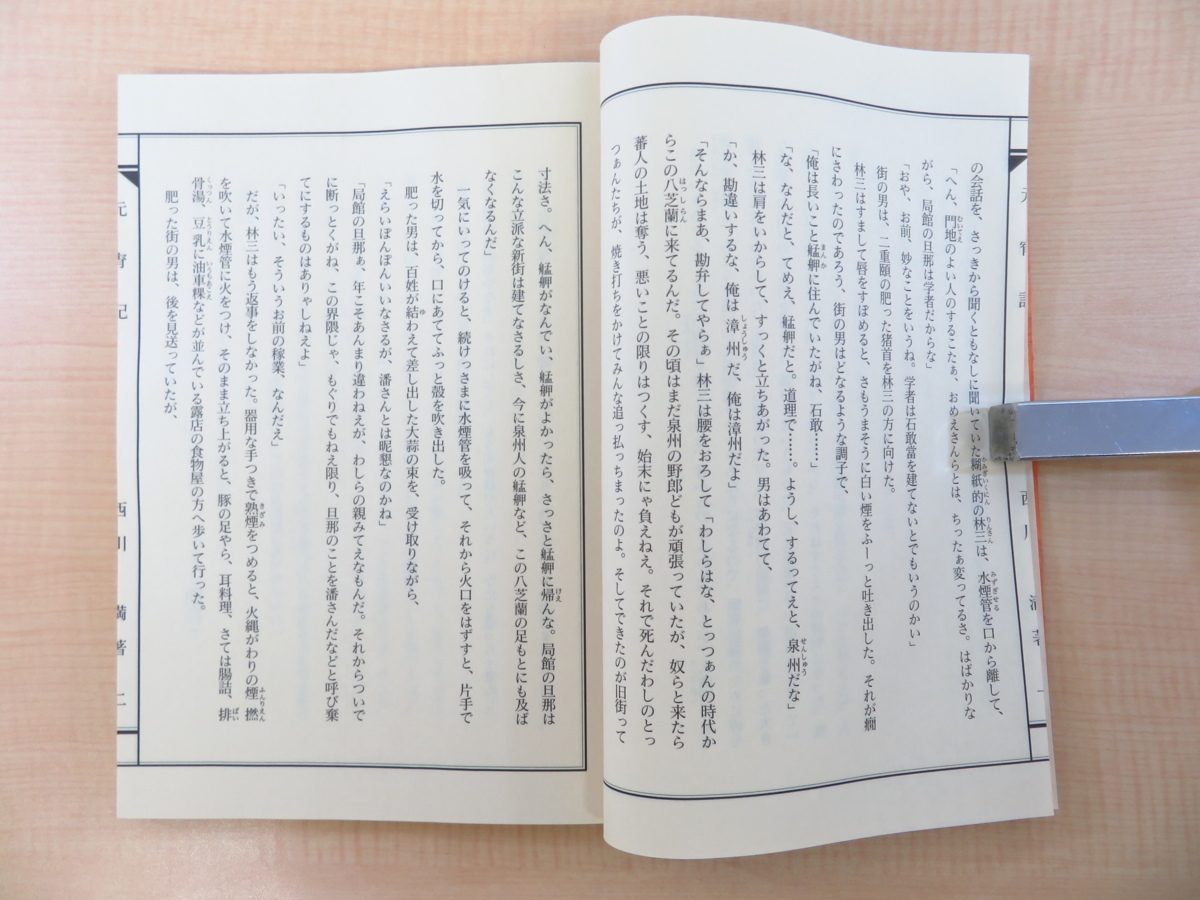 の会話を、さっきから聞くともなしに聞いていた糊紙的の林三は、水煙管を口から離して、
「へん、門地のよい人のするこたぁ、おめえさんらとは、ちったぁ変ってるさ。はばかりな
がら、局館の旦那は学者だからな」
「おや、お前、妙なことをいうね。学者は石敢當を建てないとでもいうのかい」
街の男は、二重頤の肥った猪首を林三の方に向けた。
林三はすまして唇をすぼめると、さもうまそうに白い煙をふーっと吐き出した。それが癇
にさわったのであろう、街の男はどなるような調子で、
「俺は長いこと艋舺に住んでいたがね、石敢……」
「な、なんだと、てめえ、艋舺だと。道理で……。ようし、するってえと、泉州だな」
林三は肩をいからして、すっくと立ちあがった。男はあわてて、
「か、勘違いするな、俺は漳州だ、俺は漳州だよ」
「そんならまあ、勘弁してやらぁ」林三は腰をおろして「わしらはな、とっつぁんの時代か
らこの八芝蘭に来てるんだ。その頃はまだ泉州の野郎どもが頑張っていたが、奴らと来たら
蕃人の土地は奪う、悪いことの限りはつくす、始末にゃ負えねえ。それで死んだわしのとっ
つぁんたちが、焼き打ちをかけてみんな追っ払っちまったのよ。そしてできたのが旧街って
寸法さ。へん、艋舺がなんでい、艋舺がよかったら、さっさと艋舺に帰んな。局館の旦那は
こんな立派な新街は建てなさるしさ、今に泉州人の艋舺など、この八芝蘭の足もとにも及ば
なくなるんだ」
一気にいってのけると、続けっさまに水煙管を吸って、それから火口をはずすと、片手で
水を切ってから、口にあててふっと殻を吹き出した。
肥った男は、百姓が結わえて差し出した大蒜の束を、受け取りながら、
「えらいぽんぽんいいなさるが、潘さんとは昵懇なのかね」
「局館の旦那ぁ、年こそあんまり違わねえが、わしらの親みてえなもんだ。それからついで
に断っとくがね、この界隈じゃ、もぐりでもねえ限り、旦那のことを潘さんだなどと呼び棄
てにするものはありゃしねえよ」
「いったい、そういうお前の稼業、なんだえ」
だが、林三はもう返事をしなかった。器用な手つきで熟煙をつめると、火縄がわりの煙撚
を吹いて水煙管に火をつけ、そのまま立ち上がると、豚の足やら、耳料理、さては腸詰、排
骨湯、豆乳に油車粿などが並んでいる露店の食物屋の方へ歩いて行った。
肥った街の男は、後を見送っていたが、
元宵記 西川 満著 二